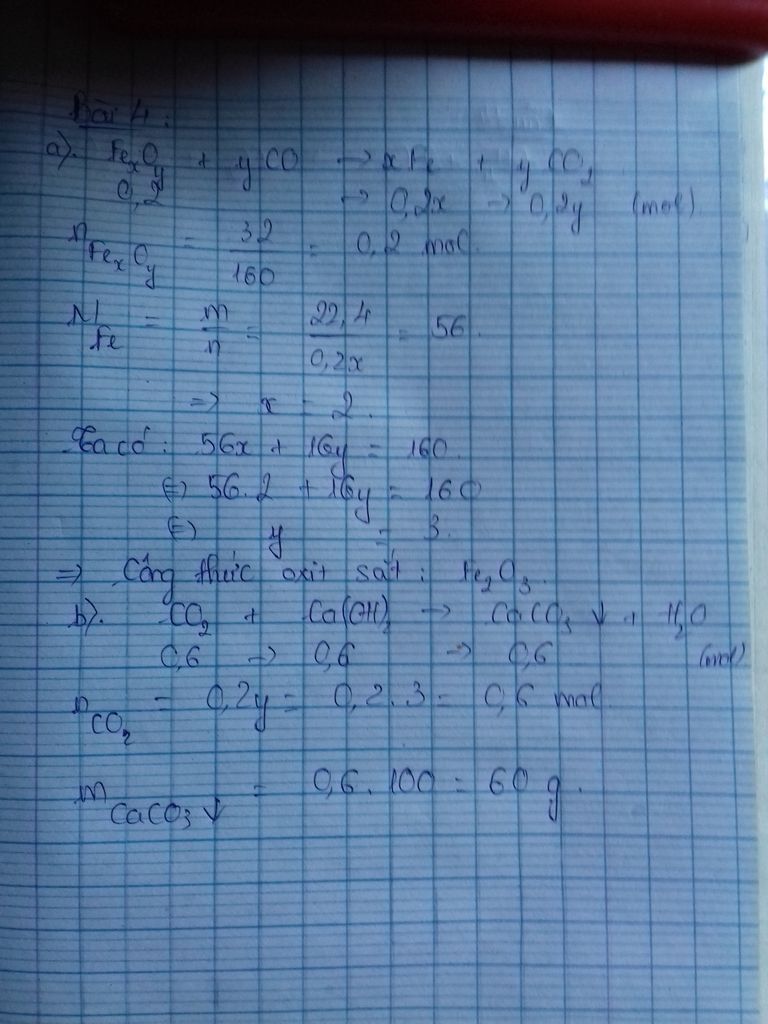 Bài 4:
a). FexOy + yCO → xFe + yCO2
0,2 → 0,2x → 0,2y (mol).
nFexOy = 32/160 = 0,2 mol.
MFe = m/n = 22,4/0,2x = 56.
=> x = 2.
Ta có: 56x + 16y = 160.
(=) 56.2 + 16y = 160
(=) y = 3.
=> Công thức oxit sắt: Fe2O3.
b). CO2 + Ca(OH)2 → CaCO3↓ + H2O
0,6 → 0,6 → 0,6 (mol)
nCO2 = 0,2y = 0,2.3 = 0,6 mol.
mCaCO3↓ = 0,6.100 = 60 g.